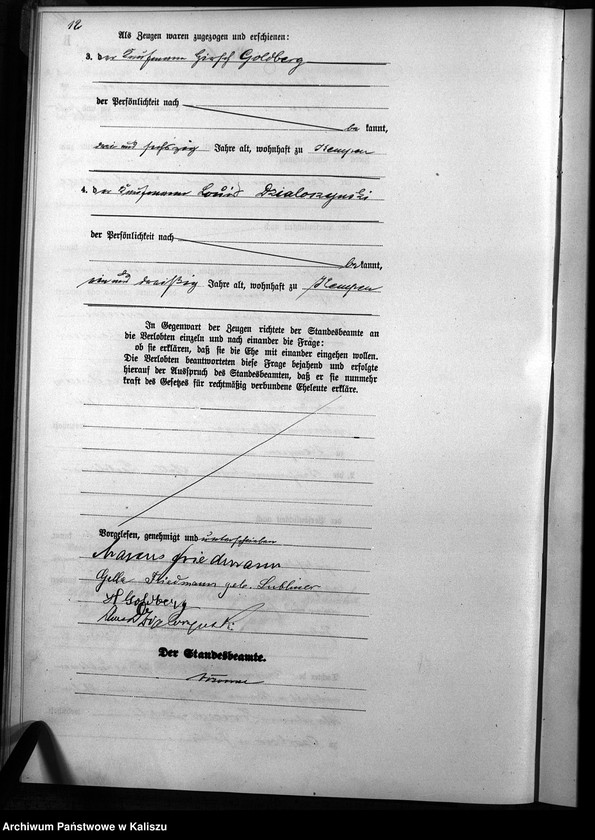 12
Als Zeugen waren zugezogen und erschienen:
3. der Kaufmann Hirsch Goldberg
der Persönlichkeit nach
be kannt,
drei und sechszig Jahre alt, wohnhaft zu Kempen
4. der Kaufmann Louis Dzialoszynski
der Persönlichkeit nach
be kannt,
ein und dreißig Jahre alt, wohnhaft zu Kempen
In Gegenwart der Zeugen richtete der Standesbeamte an
die Verlobten einzeln und nach einander die Frage:
ob sie erklären, daß sie die Ehe mit einander eingehen wollen.
Die Verlobten beantworteten diese Frage bejahend und erfolgte
hierauf der Ausspruch des Standesbeamten, daß er sie nunmehr
kraft des Gesetzes für rechtmäßig verbundene Eheleute erkläre.
Vorgelesen, genehmigt und unterschrieben
Marcus Friedmann
Friedmann geb. Lubliner
H Goldberg
Louis Dzialoszynski
Der Standesbeamte.
Archiwum Państwowe w Kaliszu